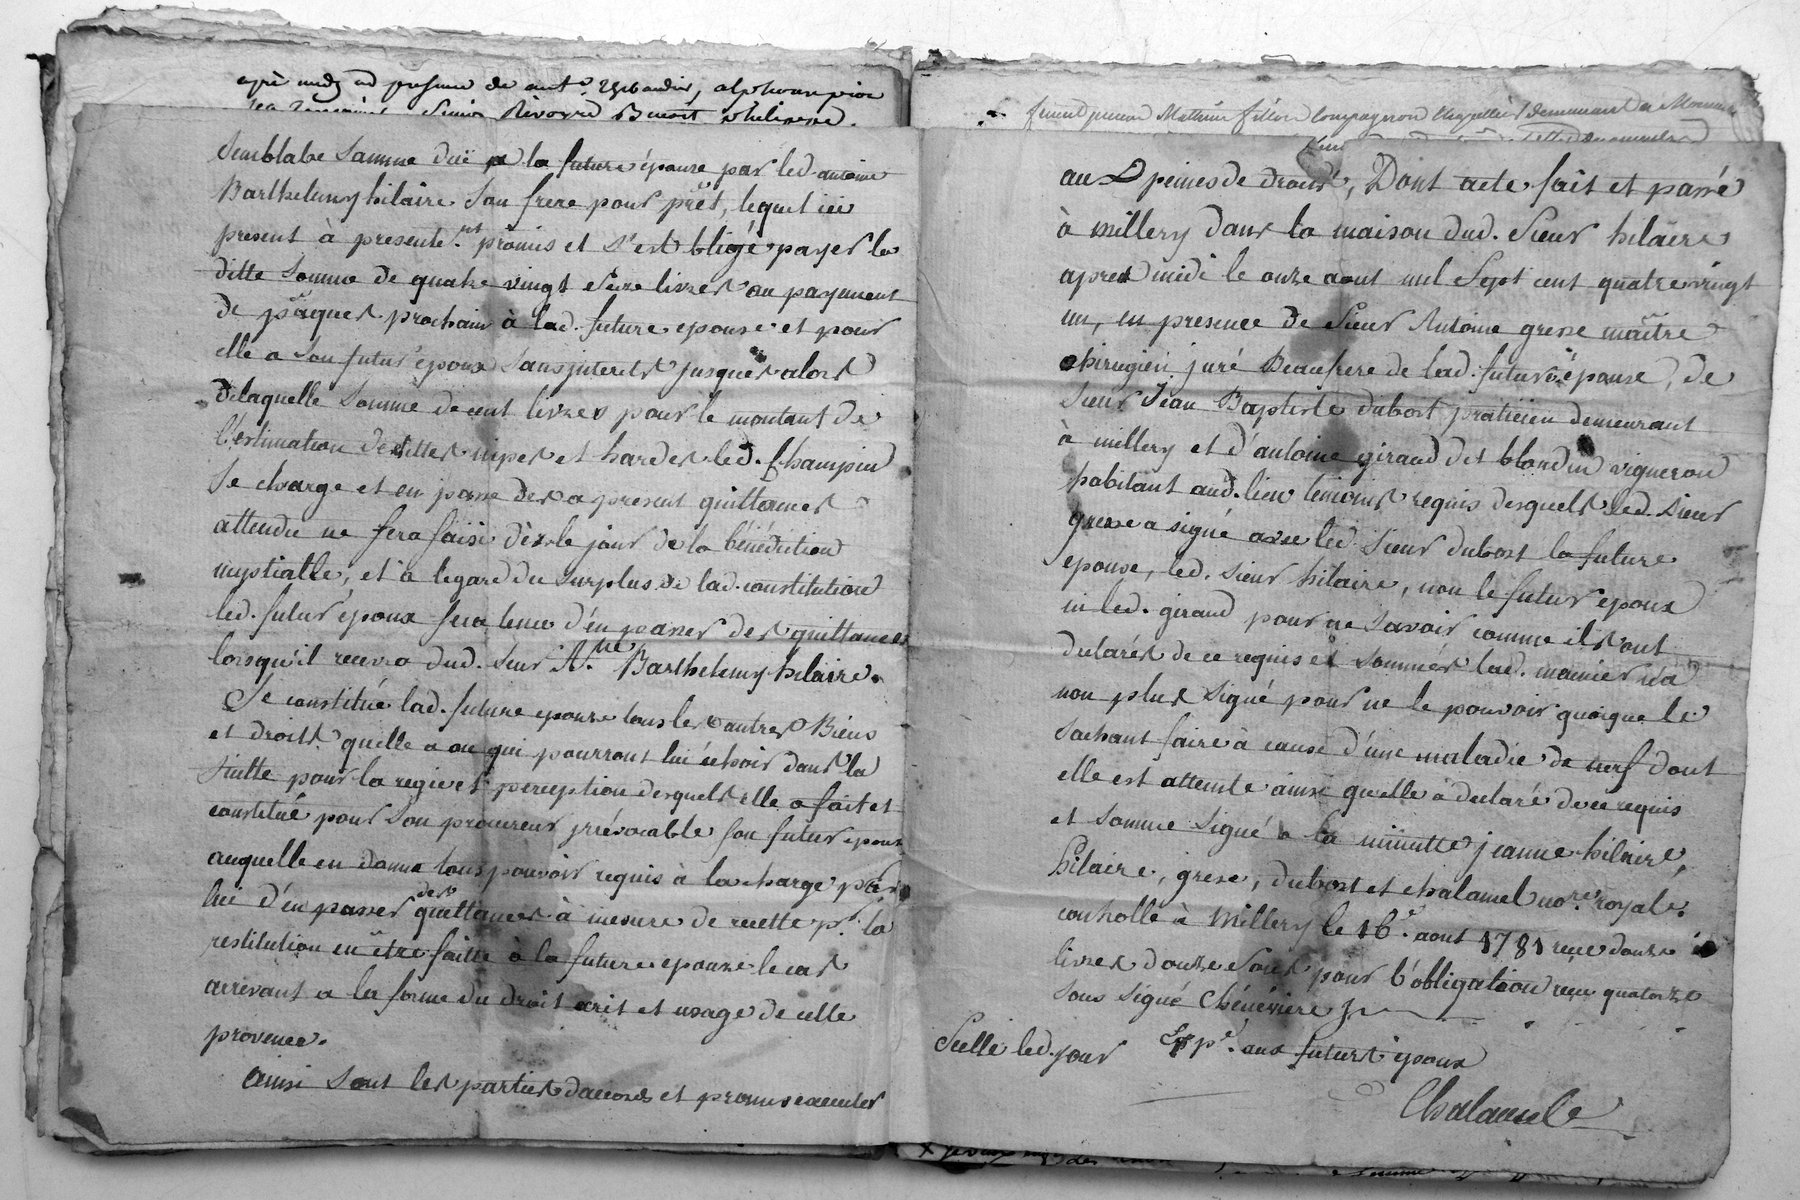 après midy en presence de
semblabe somme duë a la future épouse par led. antoine
Barthelemy hilaire son frere pour prêt, lequel ici
present à presente.nt promis et s'est obligé payer la
ditte somme de quatre vingt seize livres au payement
de pâques prochain à lad. future epouse et pour
elle a son futur époux sans interets jusques alors
delaquelle somme de cent livres pour le montant de
l'estimation desdittes nipes et hardes led. Champin
se charge et en passe des a present quittances
attendu ne sera saisi dès le jour de la bénédiction
nuptialle, et a legard du surplus de lad. constitution
led. futur époux sera tenu d'én passer des quittances
lorsqu'il recevra dud. sieur A.ne Barthelemy hilaire.
Se constitué lad. future epouze tous les autres Biens
et droits quelle a ou qui pourront lui échoir dans la
suitte pour la regie et perception desquels elle a fait et
constitué pour son procureur irrévocable son futur epoux
auquelle en donne tous pouvoir requis à la charge par
lui d'én passer des quittances à mesure de recette pr. la
restitution en être faitte à la future epouze le cas
arrivant a la forme du droit ecrit et usage de cette
provence.
Ainsi sont les parties daccords et promis executer
aux peines de droit, Dont acte fait et passé
à millery dans la maison dud. Sieur hilaire
apres midi le onze aout mil sept cent quatre vingt
un, en presence de Sieur Antoine grese maître
chirugien juré Beaufrere de lad. future épouse, de
Sieur Jean Baptiste dubost praticien demeurant
à millery et d'antoine giraud dit blondin vigneron
habitant aud. lieu temoins requis desquels led. sieur
grese a signé avec led. Sieur dubost la future
epouse, led. sieur hilaire, non le futur epoux
ni led. giraud pour ne savoir comme ils ont
declarés de ce requis et sommés lad. mounier n'a
non plus signé pour ne le pouvoir quoique le
sachant faire à cause d'une maladie de nerf dont
elle est atteinte ainsi quelle à declaré de ce requis
et somme signé a la minutte jeanne hilaire,
hilaire, grese, dubost et chalamel nore. royal.
controllé à Millery le 16e. aout 1781 reçu douze
livres douze sous pour l'obligation reçu quatorze
sous signé Chénévriere
Scellé led. jour Expe. aux futurs époux
Chalamel